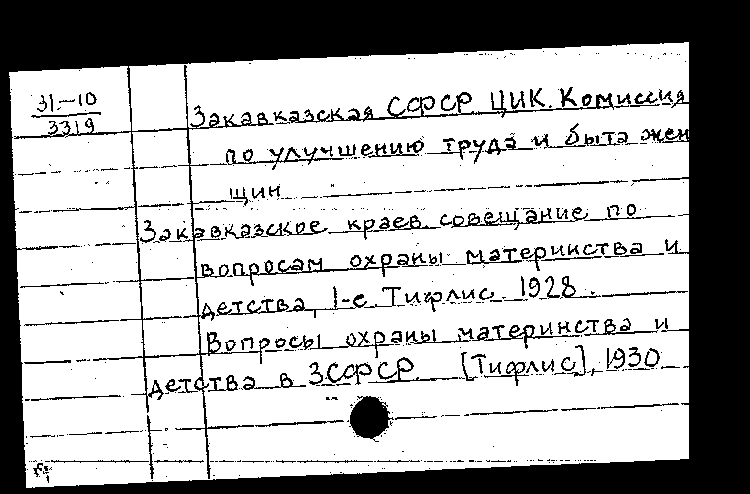 31-10
3319
Закавказская СФСР. ЦИК. Комиссия
по улучшению труда и быта жен
щин
Закавказское краев. совещание по
вопросам охраны материнства и
детства, 1-е. Тифлис. 1928.
Вопросы охраны материнства и
детства в ЗСФСР. [Тифлис], 1930